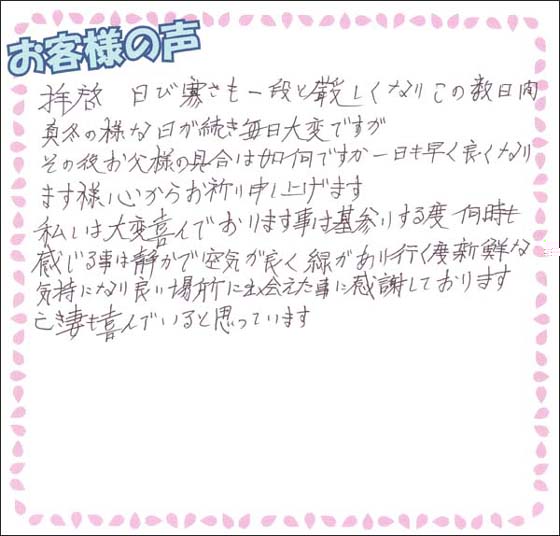 お客様の声
拝啓 日び寒さも一段と厳しくなりこの数日間
真冬の様な日が続き毎日大変ですが
その後お父様の具合は如何ですか一日も早く良くなり
ます様心からお祈り申し上げます
私しは大変喜んでおります事は墓参りする度何時も
感じる事は静かで空気が良く緑があり行く度新鮮な
気持になり良い場所に出会えた事に感謝しております
亡き妻も喜んでいると思っています